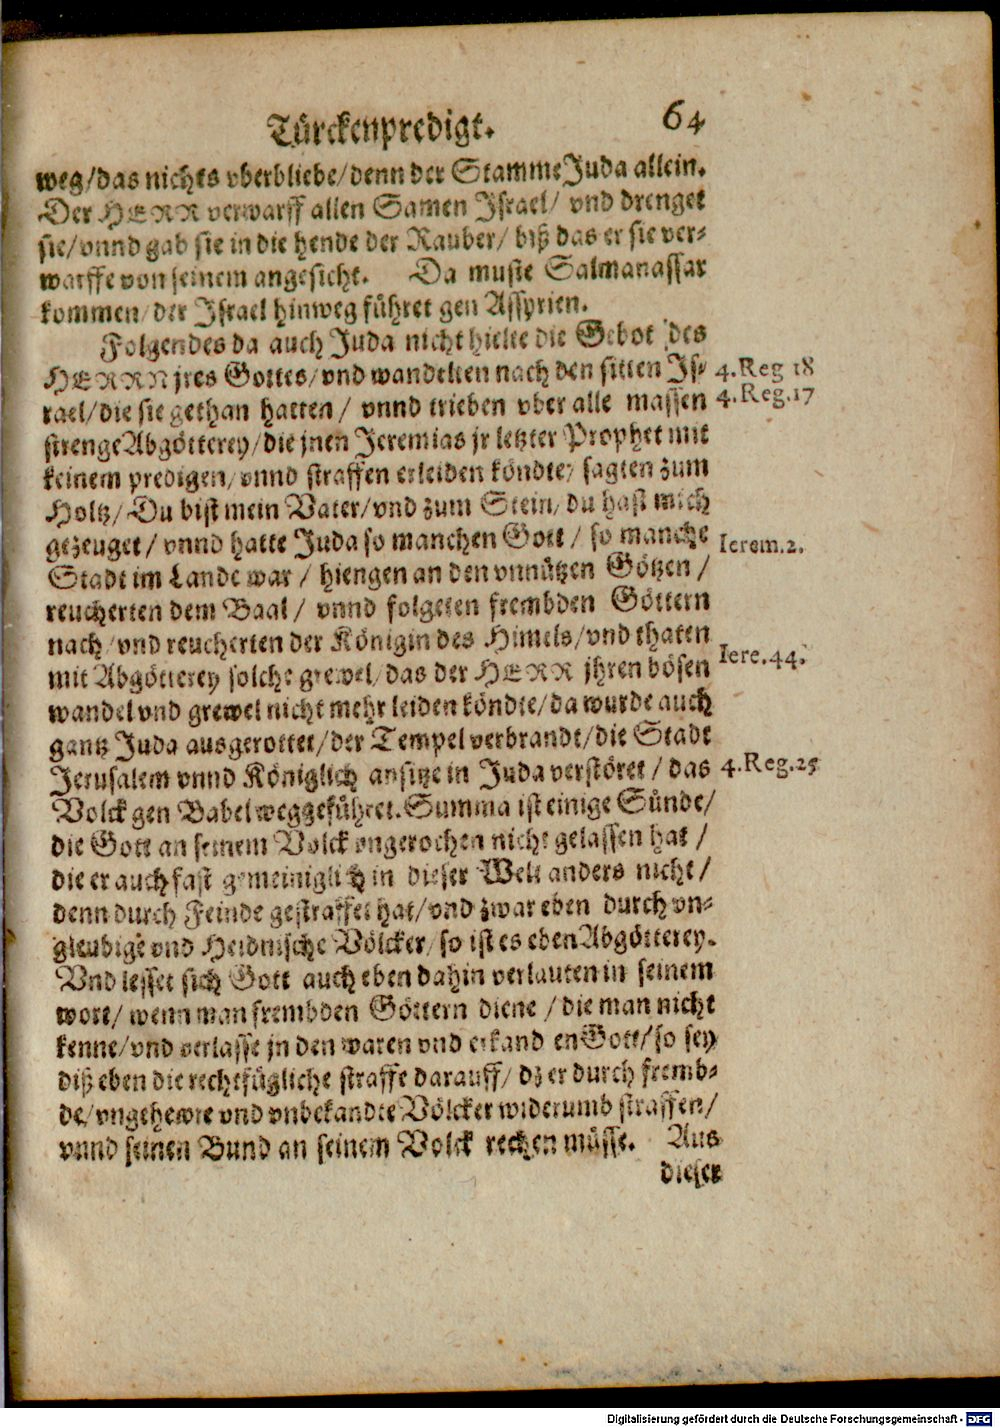 Türckenpredigt. 64
weg/das nichts vberbliebe/denn der Stamme Juda allein.
Der HERR verwarff allen Samen Israel/ vnd drenget
sie/vnnd gab sie in die hende der Rauber/ biß das er sie ver-
warffe von seinem angesicht. Da muste Salmanassar
kommen/der Israel hinweg führet gen Assyrien.
Folgendes da auch Juda nicht hielte die Gebot des
HERRN jres Gottes/vnd wandelten nach den sitten Is-
4.Reg 18
rael/die sie gethan hatten / vnnd trieben vber alle massen
4.Reg.17
strenge Abgötterey/die jnen Jeremias jr letzter Prophet mit
keinem predigen/vnnd straffen erleiden köndte/ sagten zum
Holtz/ Du bist mein Vater/vnd zum Stein/du hast mich
gezeuget / vnnd hatte Juda so manchen Gott / so manche
Ierem.2.
Stadt im Lande war / hiengen an den vnnützen Götzen /
reucherten dem Baal / vnnd folgeten frembden Göttern
nach/vnd reucherten der Königin des Himels/vnd thaten
mit Abgötterey solche grewel/das der HERR jhren bösen
Iere.44.
wandel vnd grewel nicht mehr leiden köndte/da wurde auch
gantz Juda ausgerottet/der Tempel verbrandt/die Stadt
Jerusalem vnnd Königlich ansitze in Juda verstöret / das
4.Reg.25
Volck gen Babel weggeführet. Summa ist einige Sünde/
die Gott an seinem Volck vngerochen nicht gelassen hat /
die er auch fast gemeiniglich in dieser Welt anders nicht /
denn durch Feinde gestraffet hat/vnd zwar eben durch vn-
gleubige vnd Heidnische Völcker/so ist es eben Abgötterey.
Vnd lesset sich Gott auch eben dahin verlauten in seinem
wort/ wenn man frembden Göttern diene /die man nicht
kenne/vnd verlasse jn den waren vnd erkand en Gott/so sey
diß eben die rechtfügliche straffe darauff/ dz er durch fremb-
de/vngehewre vnd vnbekandte Völcker widerumb straffen/
vnnd seinen Bund an seinem Volck rechen müsse. Aus
dieser
Digitalisierung gefördert durch die Deutsche Forschungsgemeinschaft - DFG